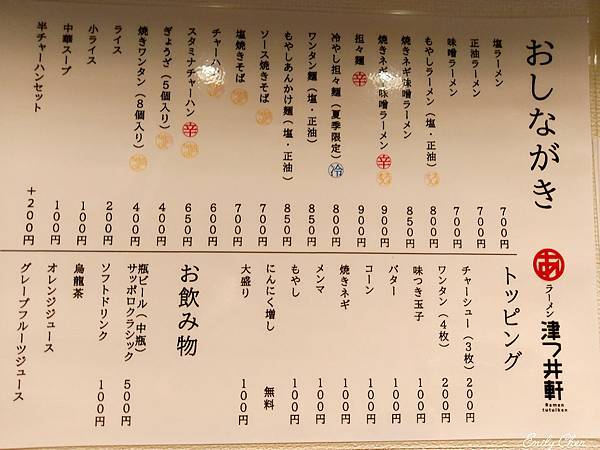 おしながき
あ
ラーメン
津つ井軒
Ramen
tutuiken
塩ラーメン 700円
正油ラーメン 700円
味噌ラーメン 700円
もやしラーメン（塩・正油） 800円
焼きネギ味噌ラーメン 850円
焼きネギ味噌ラーメン 辛 900円
担々麺 辛 900円
冷やし担々麺（夏季限定） 冷 800円
ワンタン麺（塩・正油） 850円
もやしあんかけ麺（塩・正油） 850円
ソース焼きそば 700円
塩焼きそば 700円
チャーハン 600円
スタミナチャーハン 辛 650円
ぎょうざ（5個入り） 400円
焼きワンタン（8個入り） 400円
ライス 200円
小ライス 100円
中華スープ 100円
半チャーハンセット ＋200円
トッピング
チャーシュー（3枚） 200円
ワンタン（4枚） 200円
味つき玉子 100円
バター 100円
コーン 100円
焼きネギ 100円
メンマ 100円
もやし 100円
にんにく増し 無料
大盛り 100円
お飲み物
瓶ビール（中瓶）
サッポロクラシック 500円
ソフトドリンク 100円
烏龍茶
オレンジジュース
グレープフルーツジュース
Emily Chen